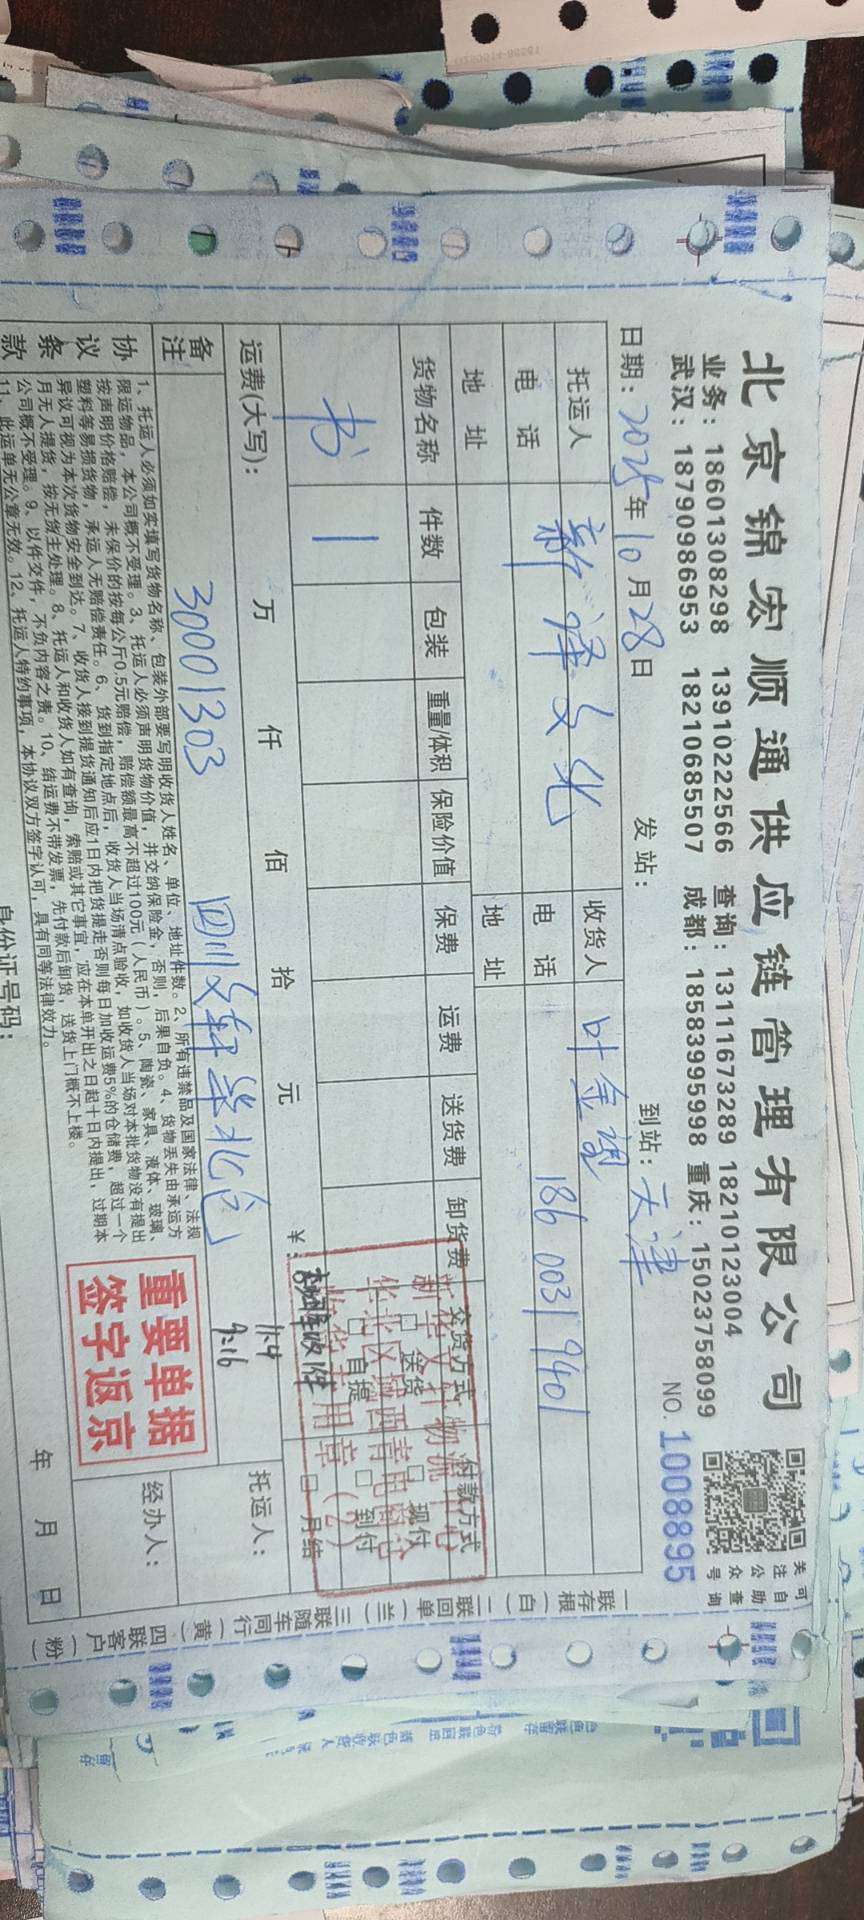 北京锦宏顺通供应链管理有限公司
业务：18601308298 13910222566 查询：13111673289 18210123004
武汉：18790986953 18210685507 成都：18583995998 重庆：15023758099
关注公众号
可自助查询
NO. 1008895
日期：2025年10月28日 发站： 到站：天津
托运人 新泽文化 收货人 叶金
电话 电话 186 0031 9401
地址 地址
货物名称 件数 包装 重量/体积 保险价值 保费 运费 送货费 卸货费 交货方式 付款方式
书 1 送货 自提 现付 到付 月结
运费(大写)： 万 仟 佰 拾 元 ¥：
备注 30001303 四川文轩华北仓
11.4
9:16
协议条款
1、托运人必须如实填写货物名称、包装外部要写明收货人姓名、单位、地址件数。2、所有违禁品及国家法律、法规
限运物品，本公司概不受理。3、托运人必须声明货物价值，并交纳保险金，否则，后果自负。4、货物丢失由承运方
按声明价格赔偿，未保价的按每公斤0.5元赔偿，赔偿额最高不超过100元（人民币）。5、陶瓷、家具、液体、玻璃、
塑料等易损货物，承运人无赔偿责任。6、货到指定地点后，收货人当场清点验收，如收货人当场对本批货物没有提出
异议可视为本次货物安全到达。7、收货人接到提货通知后应1日内把货提走否则每日加收运费5%的仓储费，超过一个
月无人提货，按无货主处理。8、托运人和收货人如有查询，索赔或其它事宜，应在本单开出之日起十日内提出，过期本
公司概不受理。9、以件交件，不负内容之责。10、结运费不带发票，先付款后卸货，送货上门概不上楼。
11、此运单无公章无效。12、托运人特约事项，本协议双方签字认可，具有同等法律效力。
重要单据
签字返京
托运人：
经办人：
身份证号码：
年 月 日
一联存根（白） 二联回单（兰） 三联随车同行（黄） 四联客户（粉）